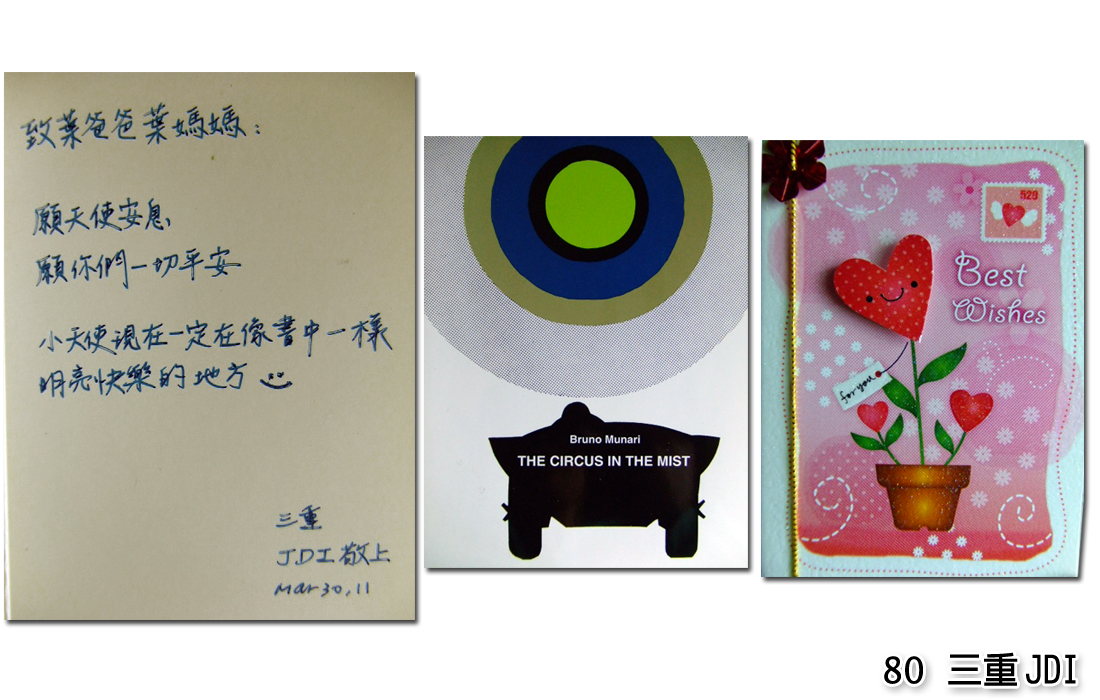 致葉爸爸葉媽媽：
願天使安息
願你們一切平安
小天使現在一定在像書中一樣
明亮快樂的地方
三重
JDI 敬上
Mar 30, 11
Bruno Munari
THE CIRCUS IN THE MIST
520
Best
Wishes
for you
80 三重 JDI